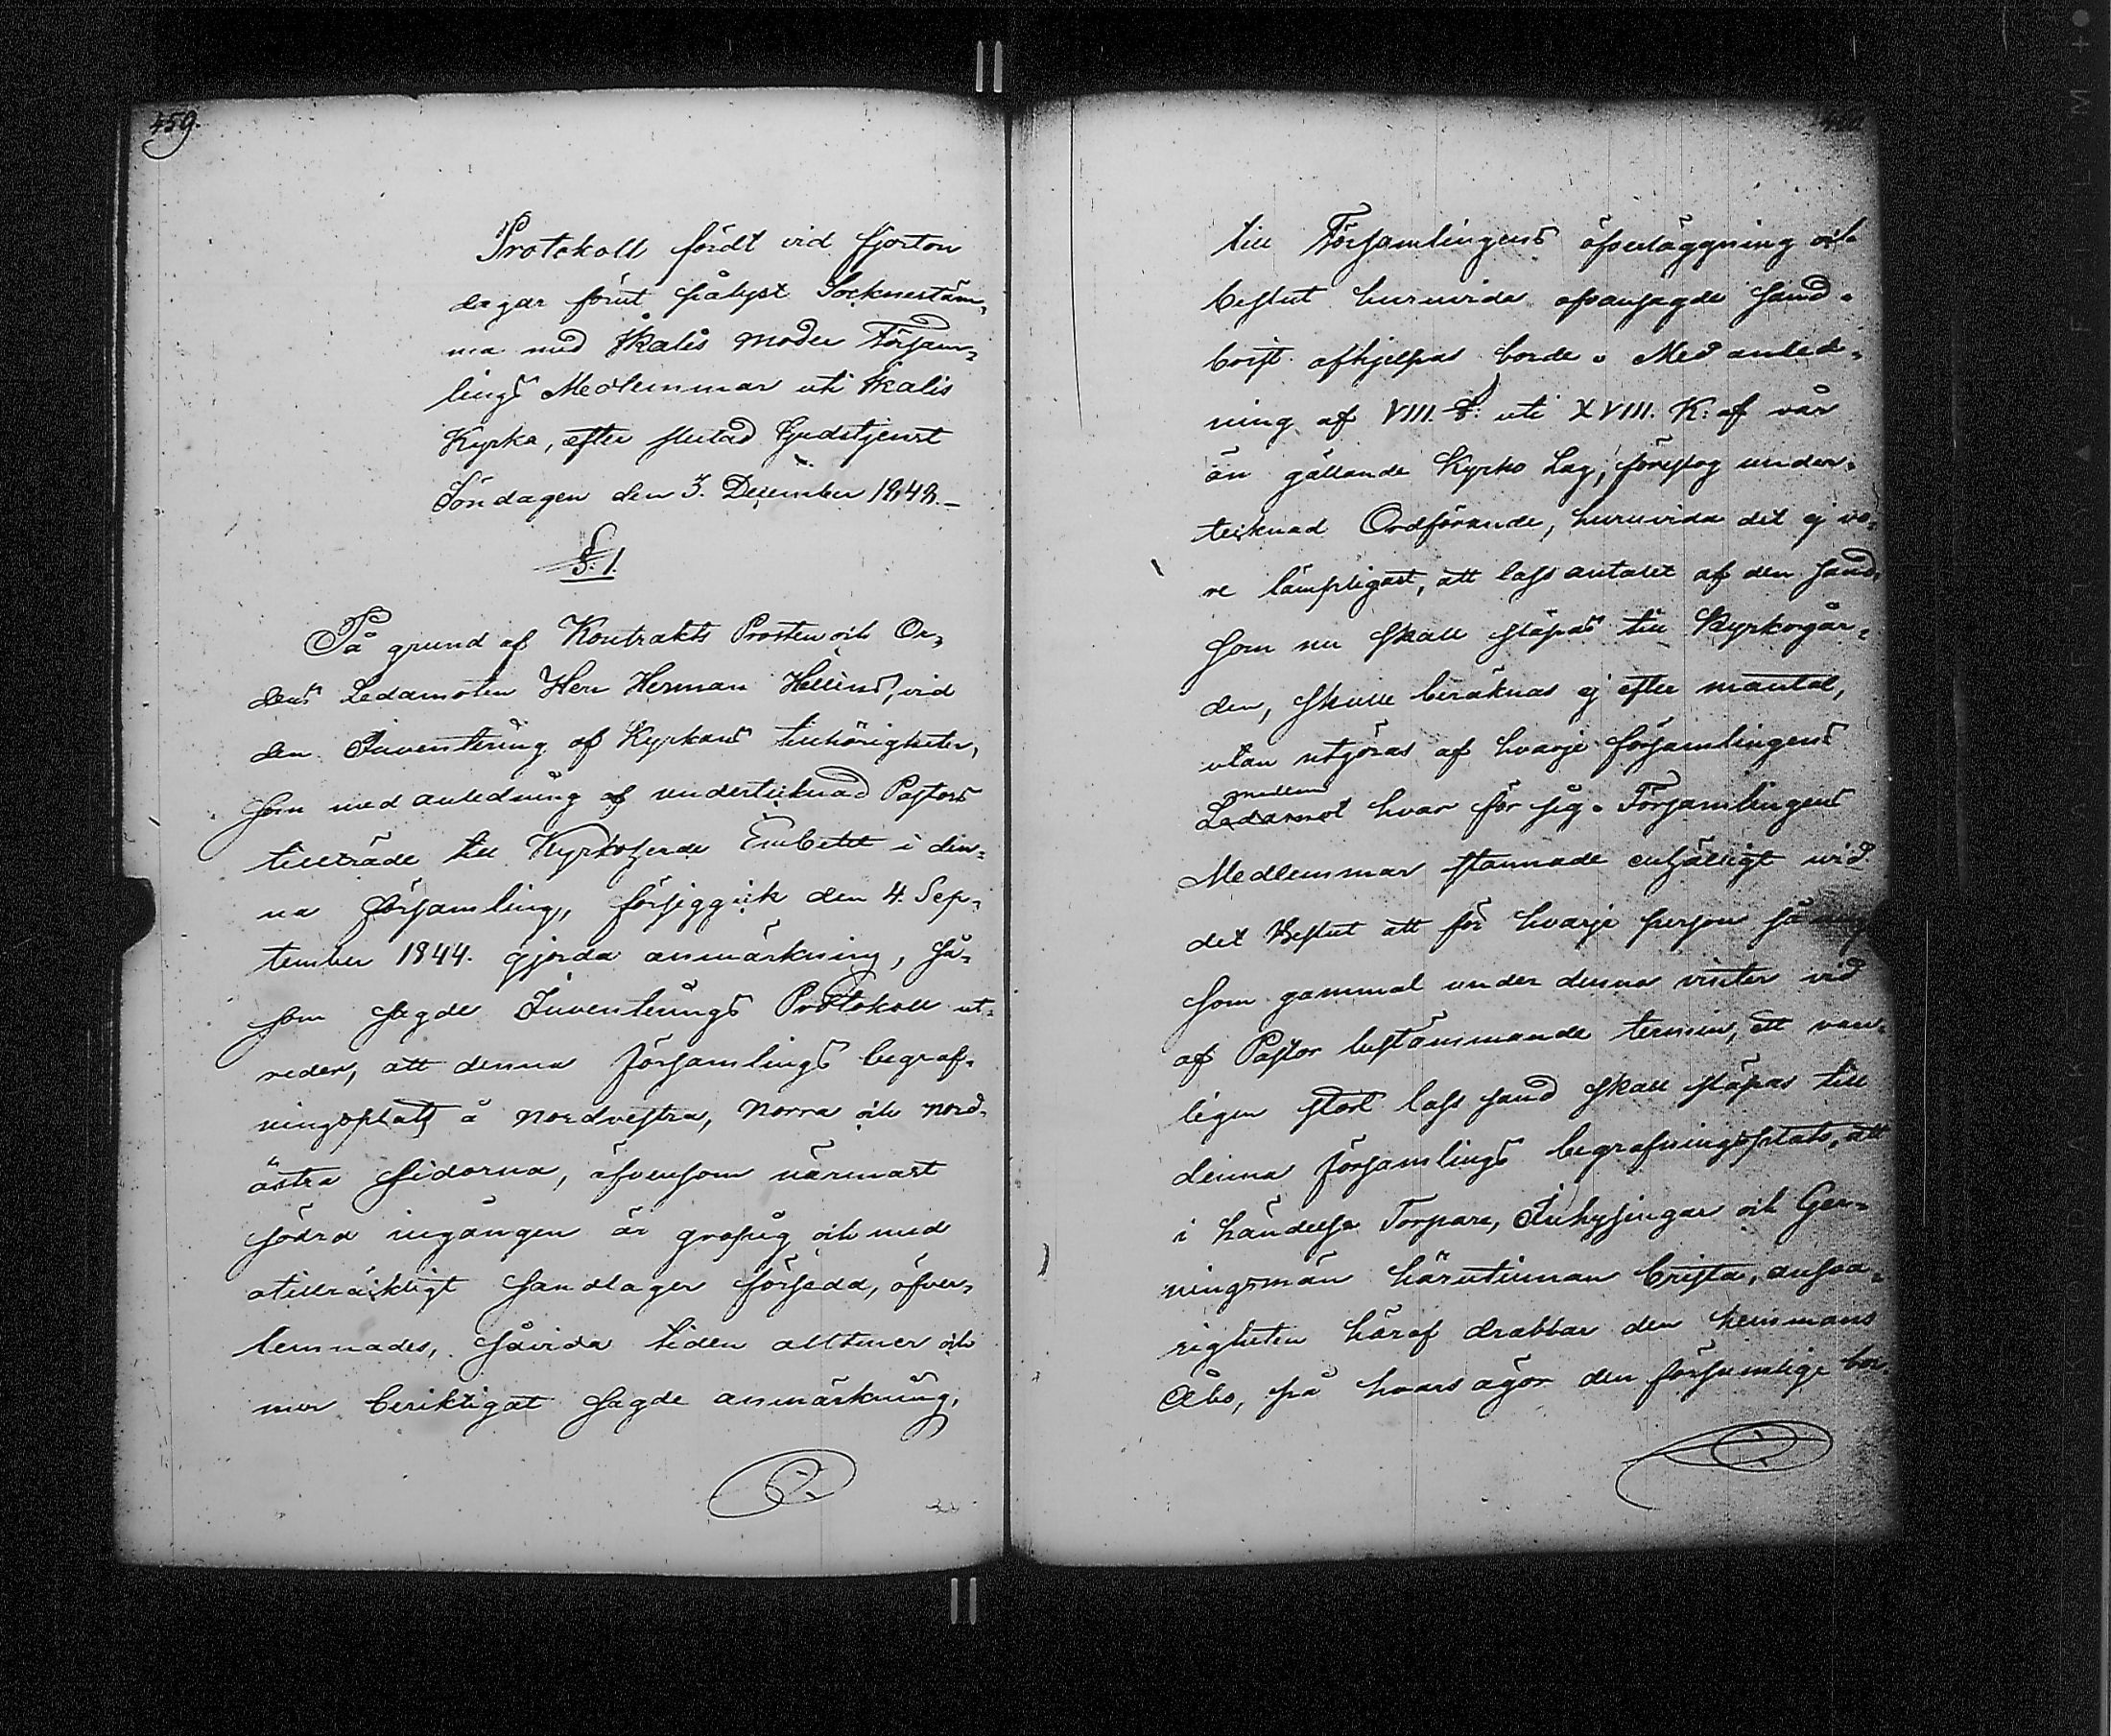 459.
Protokoll fördt vid fjorton
dagar förut pålyst Socknestäm-
ma med Ikalis moder Försam-
lings Medlemmar uti Ikalis
Kyrka, efter slutad Gudstjenst
Söndagen den 3. December 1848.-
§. 1.
På grund af Kontrakts Prosten och Or-
dens Ledamoten Herr Herman Hellens, vid
den Inventering af Kyrkans tillhörigheter,
som med anledning af undertecknad Pastors
tillträde till Kyrkoherde Embetet i den-
na församling, försiggick den 4. Sep-
tember 1844. gjorda anmärkning, så-
som sagde Inventerings Protokoll ut-
reder, att denna församlings begraf-
ningsplats å nordvestra, norra och nord-
östra sidorna, äfvensom närmast
södra ingången är gropig och med
otillräckligt sandlager försedd, öfver-
lemnades, såvida tiden alltmer och
mer beriktigat sagde anmärkning,
460
till Församlingens öfverläggning och
beslut huruvida ofvansagde sand-
brist afhjelpas borde. Med anled-
ning af VIII. §: uti XVIII. K: af vår
än gällande Kyrko Lag, föreslog under-
tecknad Ordförande, huruvida det ej vo-
re lämpligast, att lass antalet af den sand,
som nu skall släpas till Kyrkogår-
den, skulle beräknas ej efter mantal,
utan utgöras af hvarje församlingens
medlem
Ledamot hvar för sig. Församlingens
Medlemmar stannade enhälligt vid
det Beslut att för hvarje person så ung
som gammal under denna vinter vid
af Pastor bestämmande termin, ett van-
ligen stort lass sand skall släpas till
denna församlings begrafningsplats, att
i händelse Torpare, Inhysingar och Ger-
ningsmän härutinnan brista, ansva-
righeten häraf drabbar den hemmans
Åbo, på hvars ägor den försumlige bor.